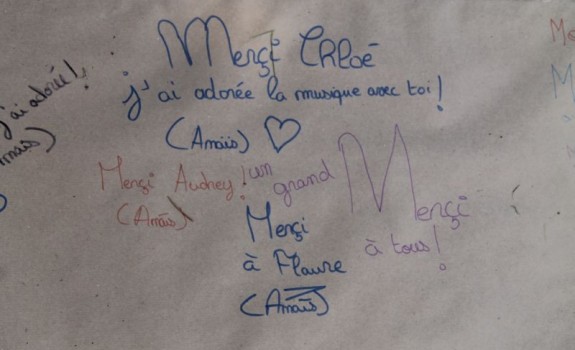 Merçi Chloé
j'ai adorée la musique avec toi!
(Anaïs)
j'ai adorée!
Merçi Audrey!
(Anaïs)
un grand Merçi
à tous!
Merçi
à Flaure
(Anaïs)